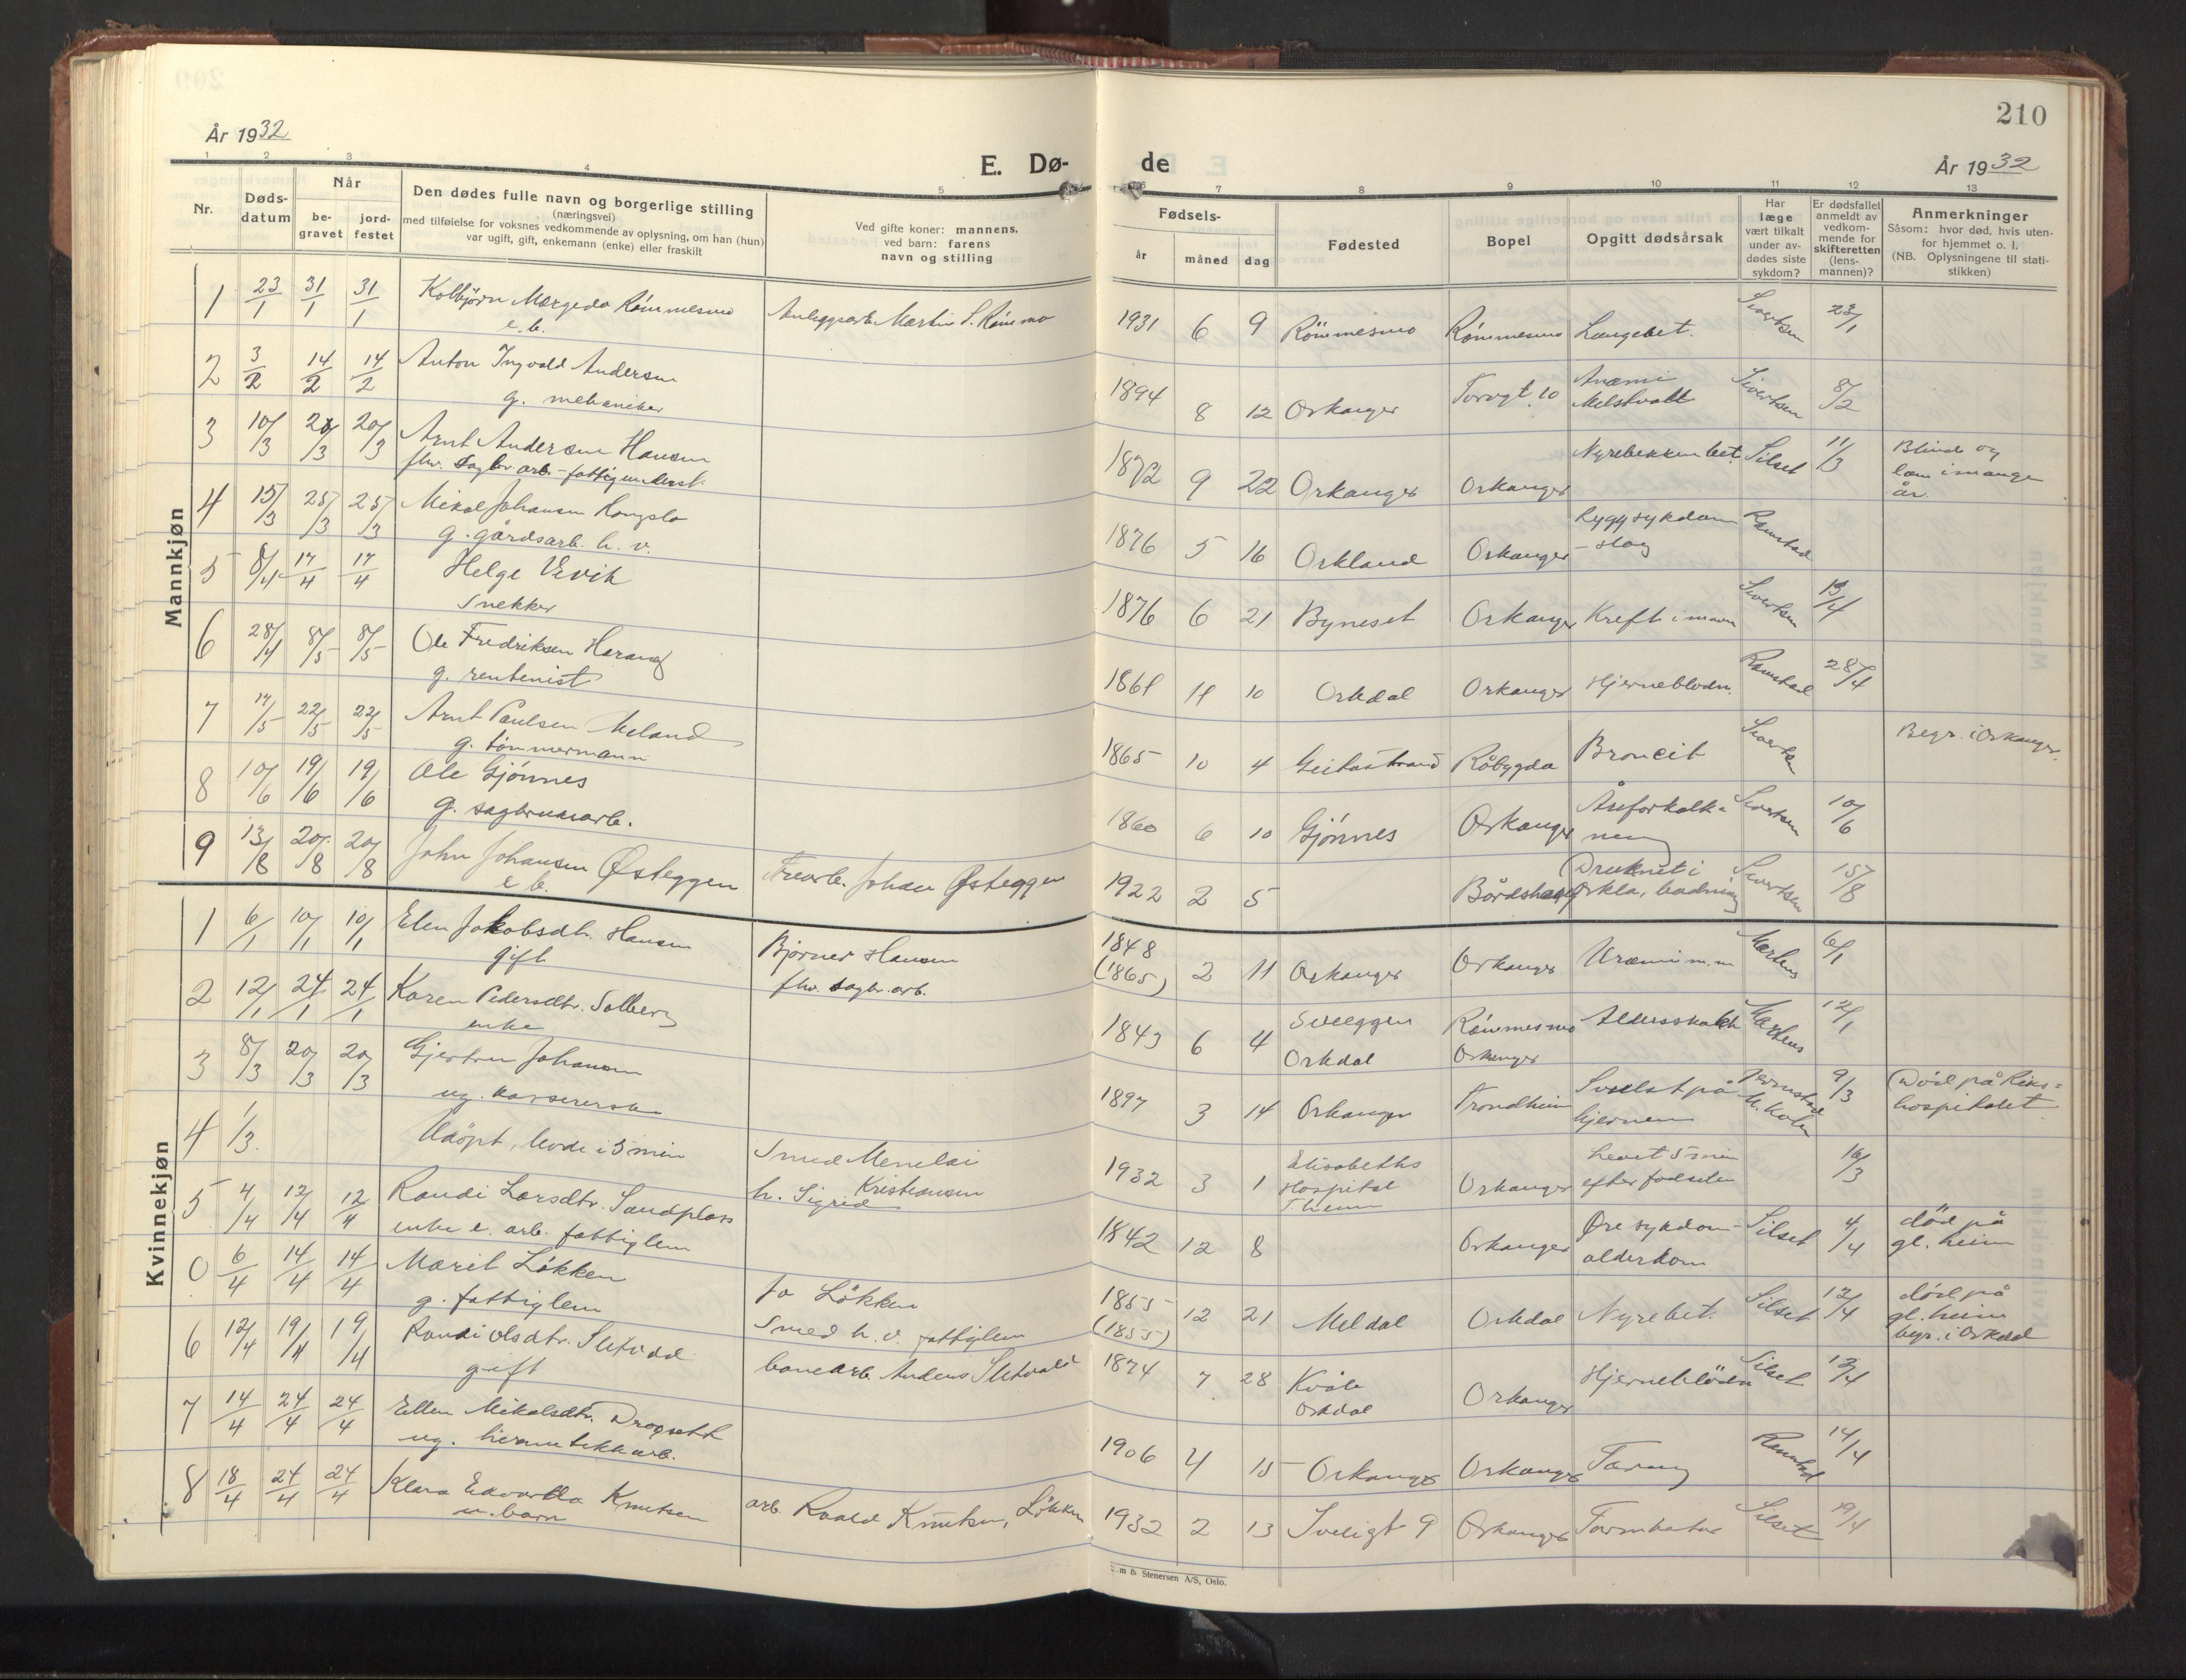 210
År 1932
E. Dø-
de
År 1932
1 2 3 4 5
6 7 8 9 10 11 12 13
Nr.
Døds-
datum
Når
be-
gravet
jord-
festet
Den dødes fulle navn og borgerlige stilling
(næringsvei)
med tilføielse for voksnes vedkommende av oplysning, om han (hun)
var ugift, gift, enkemann (enke) eller fraskilt
Ved gifte koner: mannens,
ved barn: farens
navn og stilling
Fødsels-
år måned dag
Fødested
Bopel
Opgitt dødsårsak
Har
læge
vært tilkalt
under av-
dødes siste
sykdom?
Er dødsfallet
anmeldt av
vedkom-
mende for
skifteretten
(lens-
mannen)?
Anmerkninger
Såsom: hvor død, hvis uten-
for hjemmet o. l.
(NB. Oplysningene til stati-
stikken)
Mannkjøn
1 23/1 31/1 31/1 Kolbjørn Rømmesmo
e. b.
Martin S. Rømmo
1931 6 9 Römmesmo Rømmesmo Lungebet. Sivertsen 23/1
2 3/2 14/2 14/2 Anton Ingvald Andersen
g. mekaniker
1894 8 12 Orkanger Torvgt. 10 Anæmi Sivertsen 8/2
3 10/3 20/3 20/3 Arnt Andersen Hansen
fhv. sagbr. arb. - fattigunderst.
1872 9 22 Orkanger Orkanger Nyrebekkenbet. Silset 11/3 Blind og
lam i mange
år.
4 15/3 25/3 25/3 Mikal Johansen
g. gårdsarb. h. v.
1876 5 16 Orkland Orkanger Ryggsykdom
- slag Ramstad
5 8/4 17/4 17/4 Helge Vevik
Snekker
1876 6 21 Byneset Orkanger Kreft i maven Sivertsen 13/4
6 28/4 8/5 8/5 Ole Fredriksen Harang
g. rentenist
1861 11 10 Orkdal Orkanger Hjerneblødn. Ramstad 28/4
7 17/5 22/5 22/5 Arnt Paulsen Meland
g. tømmermann
1865 10 4 Geitastrand Råbygda Broncit Sivertsen Begr. i Orkanger.
8 10/6 19/6 19/6 Ole Gjønnes
g. sagbruksarb.
1860 6 10 Gjønnes Orkanger Åreforkalk-
ning Sivertsen 10/6
9 13/8 20/8 20/8 John Johansen Østeggen
e b. Johan Østeggen
1922 2 5 Bårdshaug Druknet i
Orkla, badning Sivertsen 15/8
Kvinnekjøn
1 6/1 10/1 10/1 Elen Jakobsdtr. Hansen
gift
Bjørner Hansen
fhv. sagbr. arb.
1848
(1865) 2 11 Orkanger Orkanger Uræmi m. m Martens 6/1
2 12/1 24/1 24/1 Karen Pedersdtr. Solberg
enke
1843 6 4 Sveeggen
Orkdal Rømmesmo
Orkanger Aldersskrøp. Martens 12/1
3 8/3 20/3 20/3 Gjertrun Johansen
ug. kassererske
1897 3 14 Orkanger Trondheim Svulst på
hjernen 9/3 Død på Riks-
hospitalet
4 1/3. Udöpt, levde i 5 min
Smed Menelai
Kristiansen
h. Sigrid
1932 3 1 Elisabeths
Hospital
T.heim Orkanger Levet 5 min
efter fødselen 16/3
5 4/4 12/4 12/4 Randi Larsdtr. Sandplass
enke e. arb. fattiglem
1842 12 8 Orkanger Øresykdom -
alderdom Silset 4/4 död på
gl. heim
0 6/4 14/4 14/4 Marit Løkken
g. fattiglem
Jo Løkken
Smed h. v. fattiglem
1855
(1855) 12 21 Meldal Orkdal Nyrebet. Silset 12/4 död på
gl. heim
begr. i Orkdal
6 12/4 19/4 19/4 Randi Olsdtr. Sletvold
gift
banearb. Anders Sletvold
1874 7 28 Kvåle
Orkdal Orkanger Hjerneblöden Silset 13/4
7 14/4 24/4 24/4 Ellen Mikalsdtr. Drogsett
ug. hermetikkarb.
1906 4 15 Orkanger Orkanger Tæring Ramstad 14/4
8 18/4 24/4 24/4 Klara Edvarda Knutsen
u. barn
arb. Roald Knutsen, Løkken
1932 2 13 9 Orkanger Tarmkatar Silset 19/4
& Stenersen A/S, Oslo.